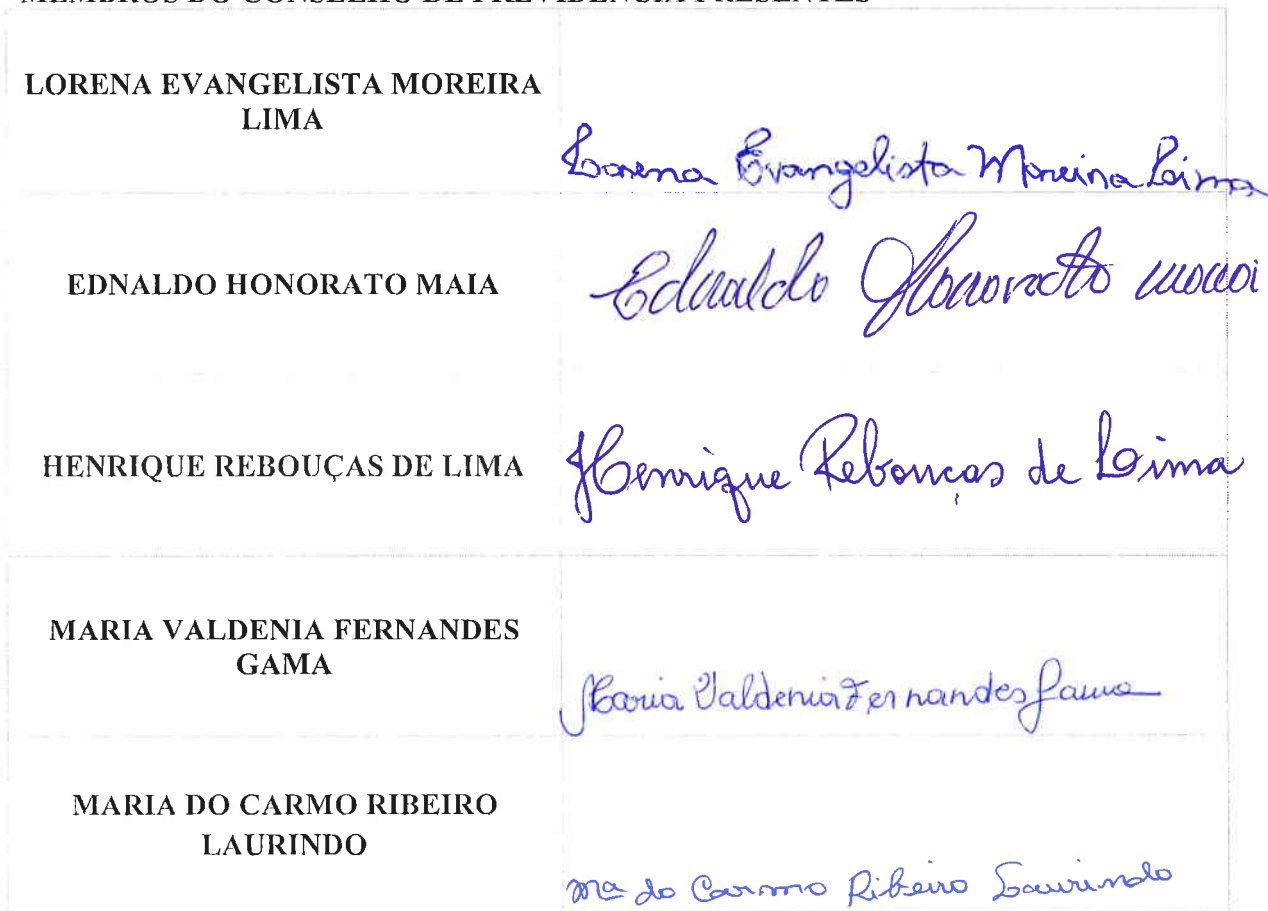 MEMBROS DO CONSELHO DE PREVIDÊNCIA PRESENTES
LORENA EVANGELISTA MOREIRA
LIMA
Lorena Evangelista Moreira Lima
EDNALDO HONORATO MAIA
Ednaldo Honorato Maia
HENRIQUE REBOUÇAS DE LIMA
Henrique Rebouças de Lima
MARIA VALDENIA FERNANDES
GAMA
Maria Valdenia Fernandes Gama
MARIA DO CARMO RIBEIRO
LAURINDO
Mª do Carmo Ribeiro Laurindo